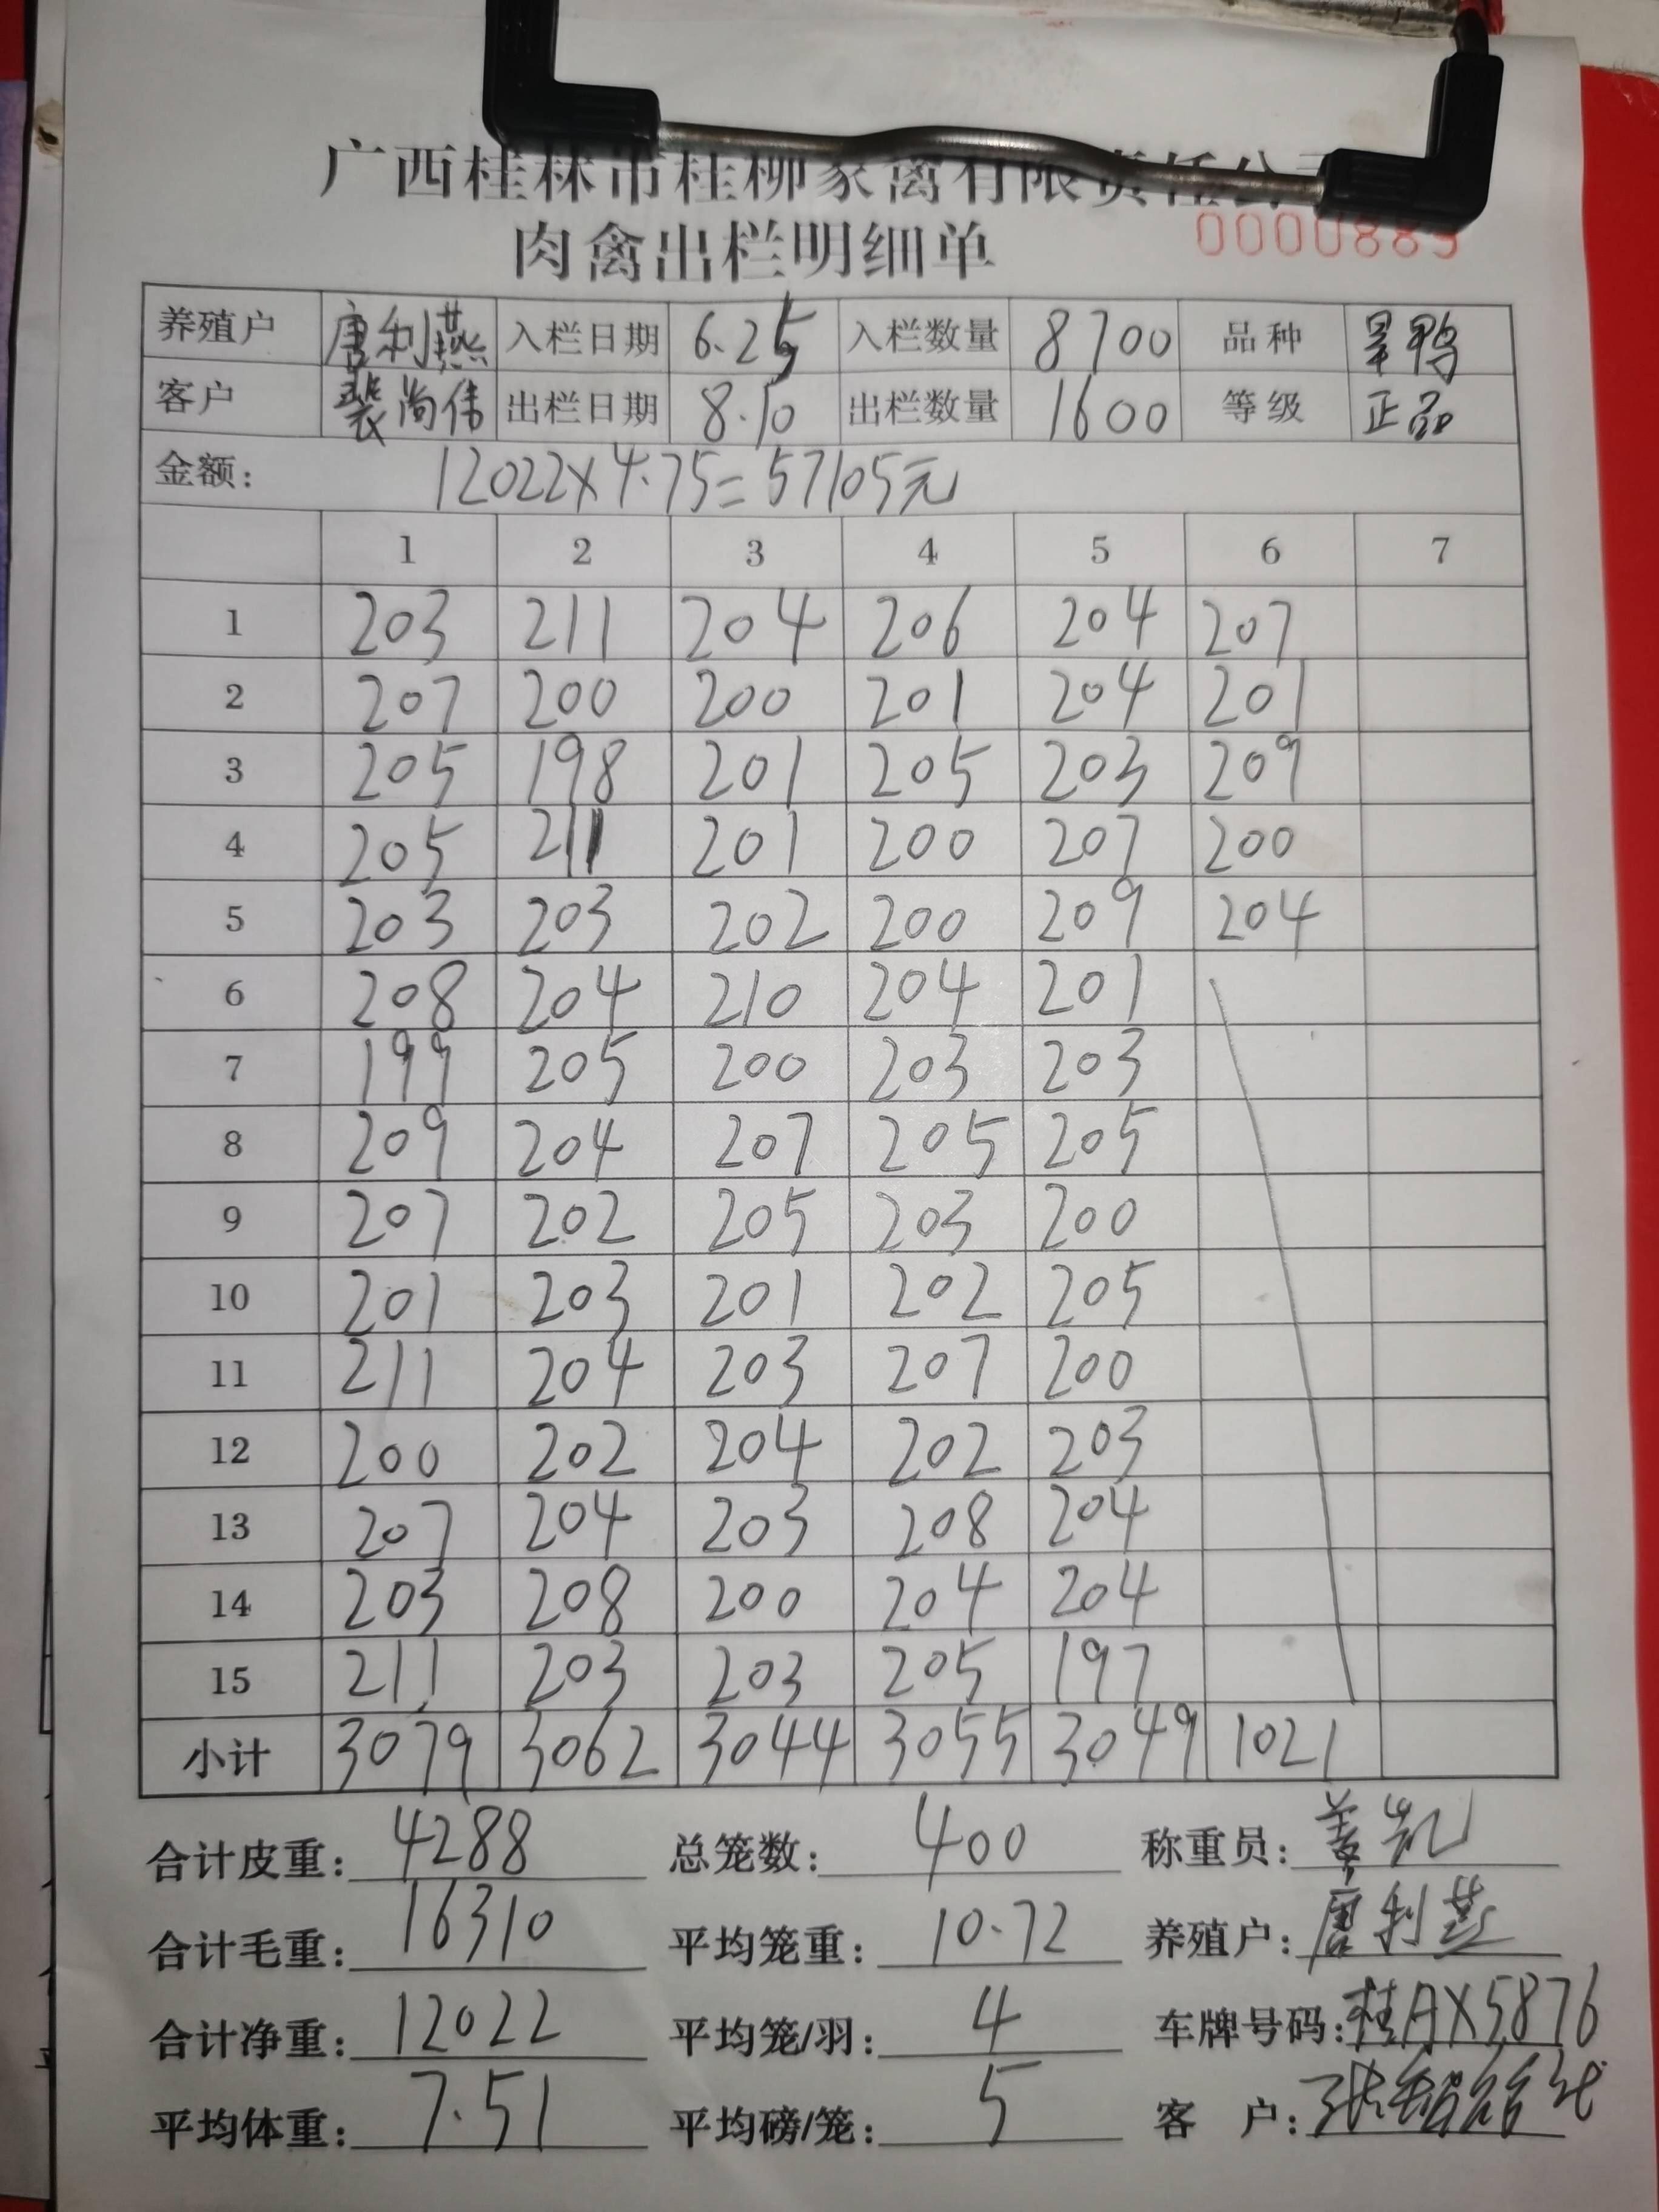 广西桂林市桂柳家禽有限责任公
肉禽出栏明细单
0000889
养殖户 唐利燕 入栏日期 6.25 入栏数量 8700 品种
客户 裴尚伟 出栏日期 8.10 出栏数量 1600 等级 正品
金额: 12022×4.75=57105元
1 2 3 4 5 6 7
1 203 211 204 206 204 207
2 207 200 200 201 204 201
3 205 198 201 205 203 209
4 205 211 201 200 207 200
5 203 203 202 200 209 204
6 208 204 210 204 201
7 199 205 200 203 203
8 209 204 207 205 205
9 207 202 205 203 200
10 201 203 201 202 205
11 211 204 203 207 200
12 200 202 204 202 203
13 207 204 203 208 204
14 203 208 200 204 204
15 211 203 203 205 197
小计 3079 3062 3044 3055 3049 1021
合计皮重: 4288 总笼数: 400 称重员:
合计毛重: 16310 平均笼重: 10.72 养殖户: 唐利燕
合计净重: 12022 平均笼/羽: 4 车牌号码: 桂AX5876
平均体重: 7.51 平均磅/笼: 5 客 户: